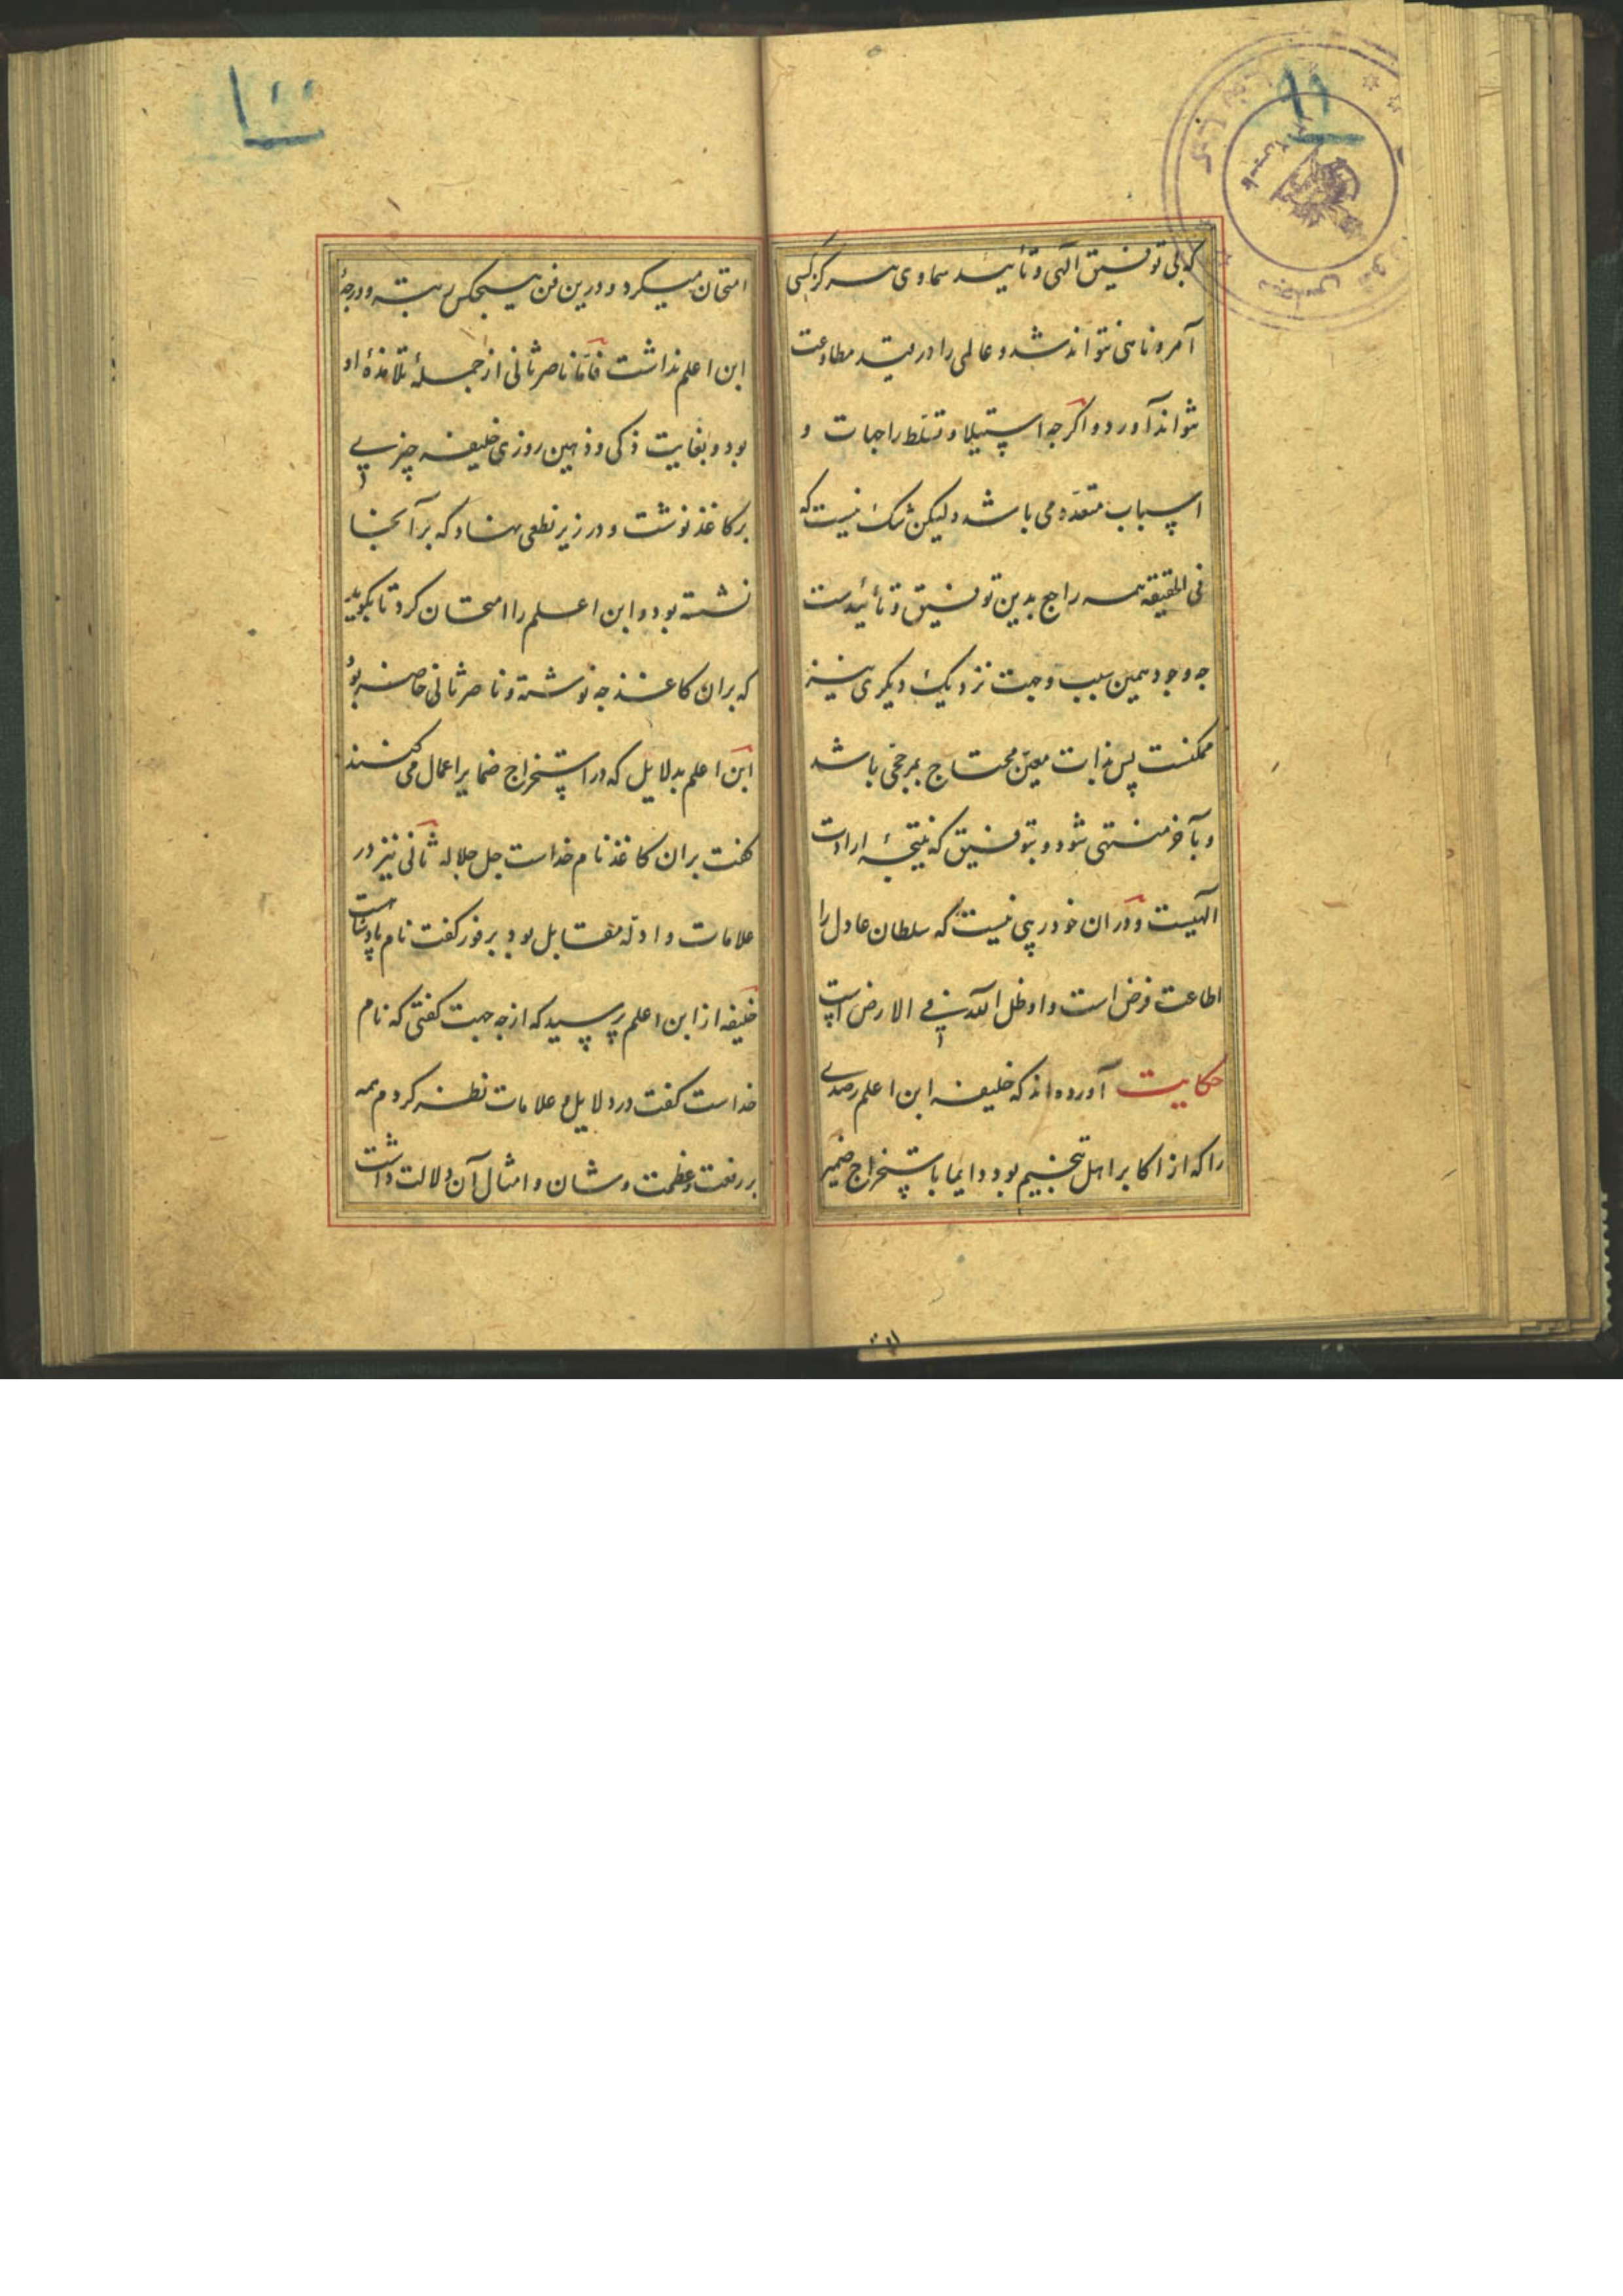 ۹۹
که بی توفیق الهی و تأیید سماوی هرگز کسی
آمر و ناهی نتواند شد و عالمی را در قید مطاوعت
نتواند آورد و اگرچه استیلا و تسلط را جهات و
اسباب متعدده می باشد و لیکن شک نیست که
فی الحقیقه همه راجع بدین توفیق و تأییدست
چه وجود همین سبب و جهت نزدیک دیگری نیز
ممکنست پس بذات معین محتاج بمرجحی باشد
و بآخر منتهی شود و بتوفیق که نتیجهٔ ارادت
الهیست و در ان خود ریبی نیست که سلطان عادل را
اطاعت فرض است و او ظل الله فی الارض است
حکایت آورده اند که خلیفه ابن اعلم رصدی
را که از اکابر اهل تنجیم بود دایما باستخراج ضمیر
۱۰۰
امتحان میکرد و درین فن هیچکس رتبه و درجهٔ
ابن اعلم نداشت فامّا ناصر ثانی از جملهٔ تلامذهٔ او
بود و بغایت ذکی و ذهین روزی خلیفه چیزی
بر کاغذ نوشت و در زیر نطعی نهاد که بر آنجا
نشسته بود و ابن اعلم را امتحان کرد تا بگوید
که بران کاغذ چه نوشته و ناصر ثانی حاضر بود
ابن اعلم بدلایل که در استخراج ضمایر اعمال می کنند
گفت بران کاغذ نام خداست جل جلاله ثانی نیز در
علامات و ادله مقابل بود بر فور گفت نام پادشاست
خلیفه از ابن اعلم پرسید که از چه جهت گفتی که نام
خداست گفت در دلایل و علامات نظر کردم همه
بر رفعت و عظمت و شان و امثال آن دلالت داشت